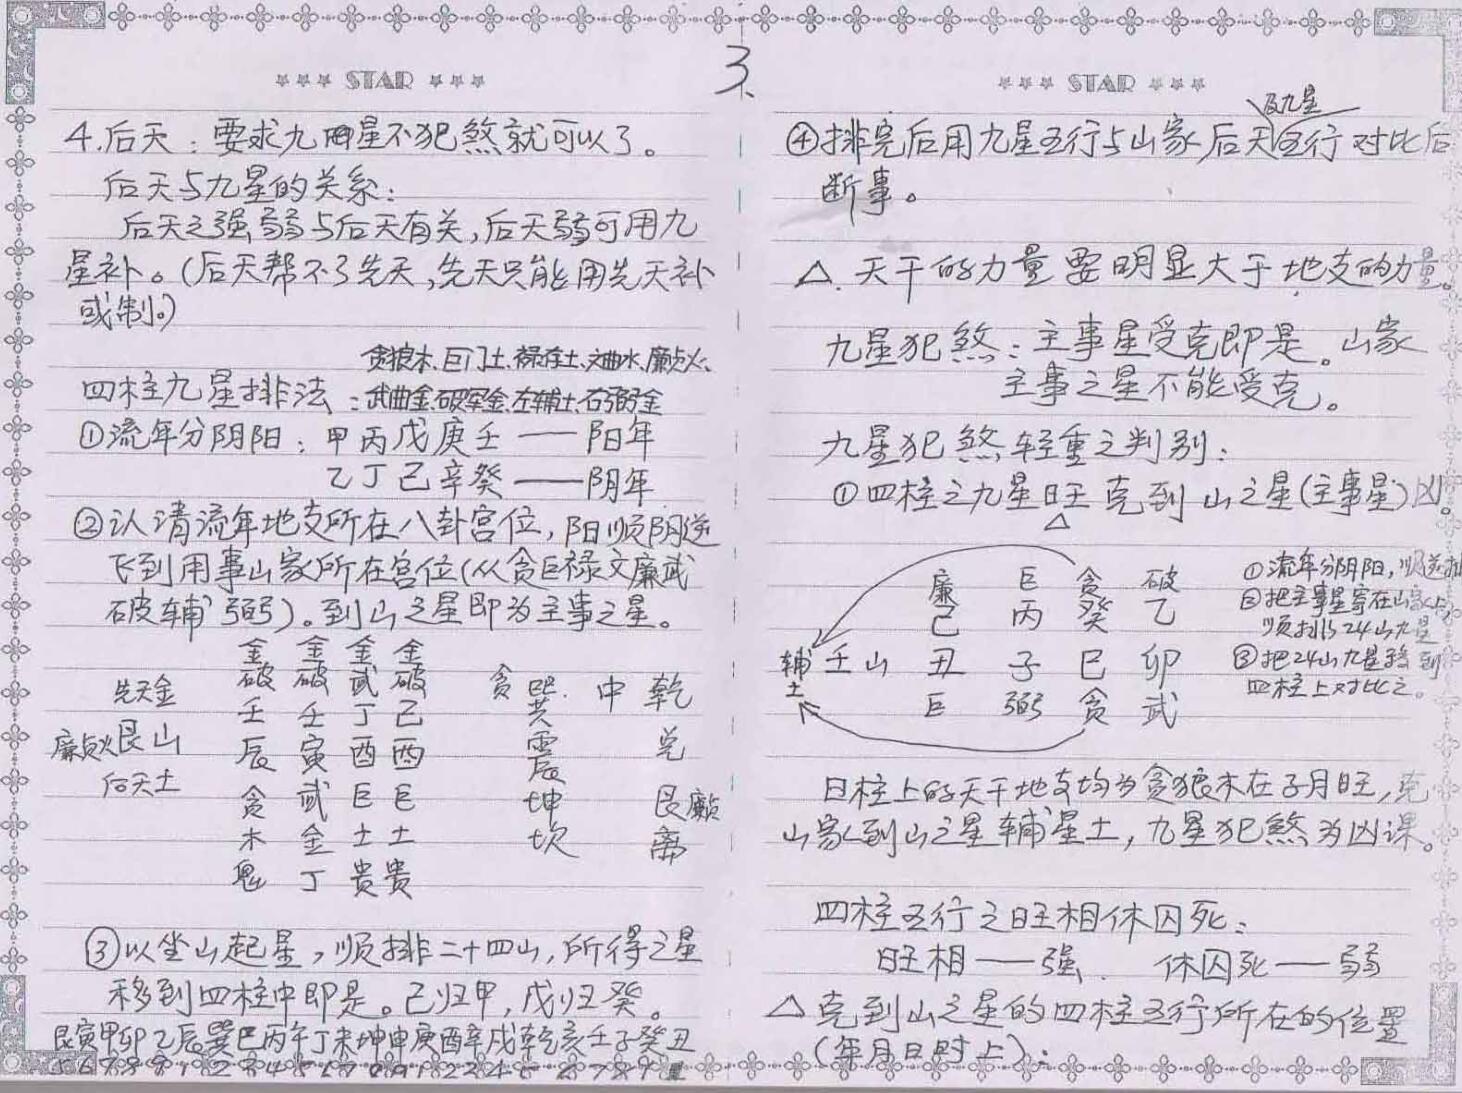 3、
STAR
4.后天：要求九曜星不犯煞就可以了。
后天与九星的关系：
后天之强弱与后天有关，后天弱可用九
星补。（后天帮不了先天，先天只能用先天补
或制。）
贪狼木、巨门土、禄存土、文曲水、廉贞火、
四柱九星排法：武曲金、破军金、左辅土、右弼金
①流年分阴阳：甲丙戊庚壬——阳年
乙丁己辛癸——阴年
②认清流年地支所在八卦宫位，阳顺阴逆
飞到用事山家所在宫位（从贪巨禄文廉武
破辅弼）。到山之星即为主事之星。
金 金 金 金
破 破 武 破 贪 巽 中 乾
先天金 壬 壬 丁 己
廉贞火艮山 辰 寅 酉 酉 震 兑
后天土 辰
贪 武 巨 巨 坤 艮廉贞
木 金 土 土 坎 离
鬼 丁 贵 贵
③以坐山起星，顺排二十四山，所得之星
移到四柱中即是。己归甲，戊归癸。
艮寅甲卯乙辰巽巳丙午丁未坤申庚酉辛戌乾亥壬子癸丑
STAR
及九星
④排完后用九星五行与山家后天五行对比后
断事。
△.天干的力量要明显大于地支的力量。
九星犯煞：主事星受克即是。山家
主事之星不能受克。
九星犯煞轻重之判别：
①四柱之九星旺克到山之星（主事星）凶。
△
廉 巨 贪 破
己 丙 癸 乙
辅土 壬山 丑 子 巳 卯
巨 弼 贪 武
①流年分阴阳，顺逆排
②把主事星寄在山家上，
顺排24山九星
③把24山九星移到
四柱上对比之。
日柱上的天干地支均为贪狼木在子月旺，克
山家到山之星辅星土，九星犯煞为凶课。
四柱五行之旺相休囚死：
旺相——强. 休囚死——弱
△克到山之星的四柱五行所在的位置
（年月日时上）：